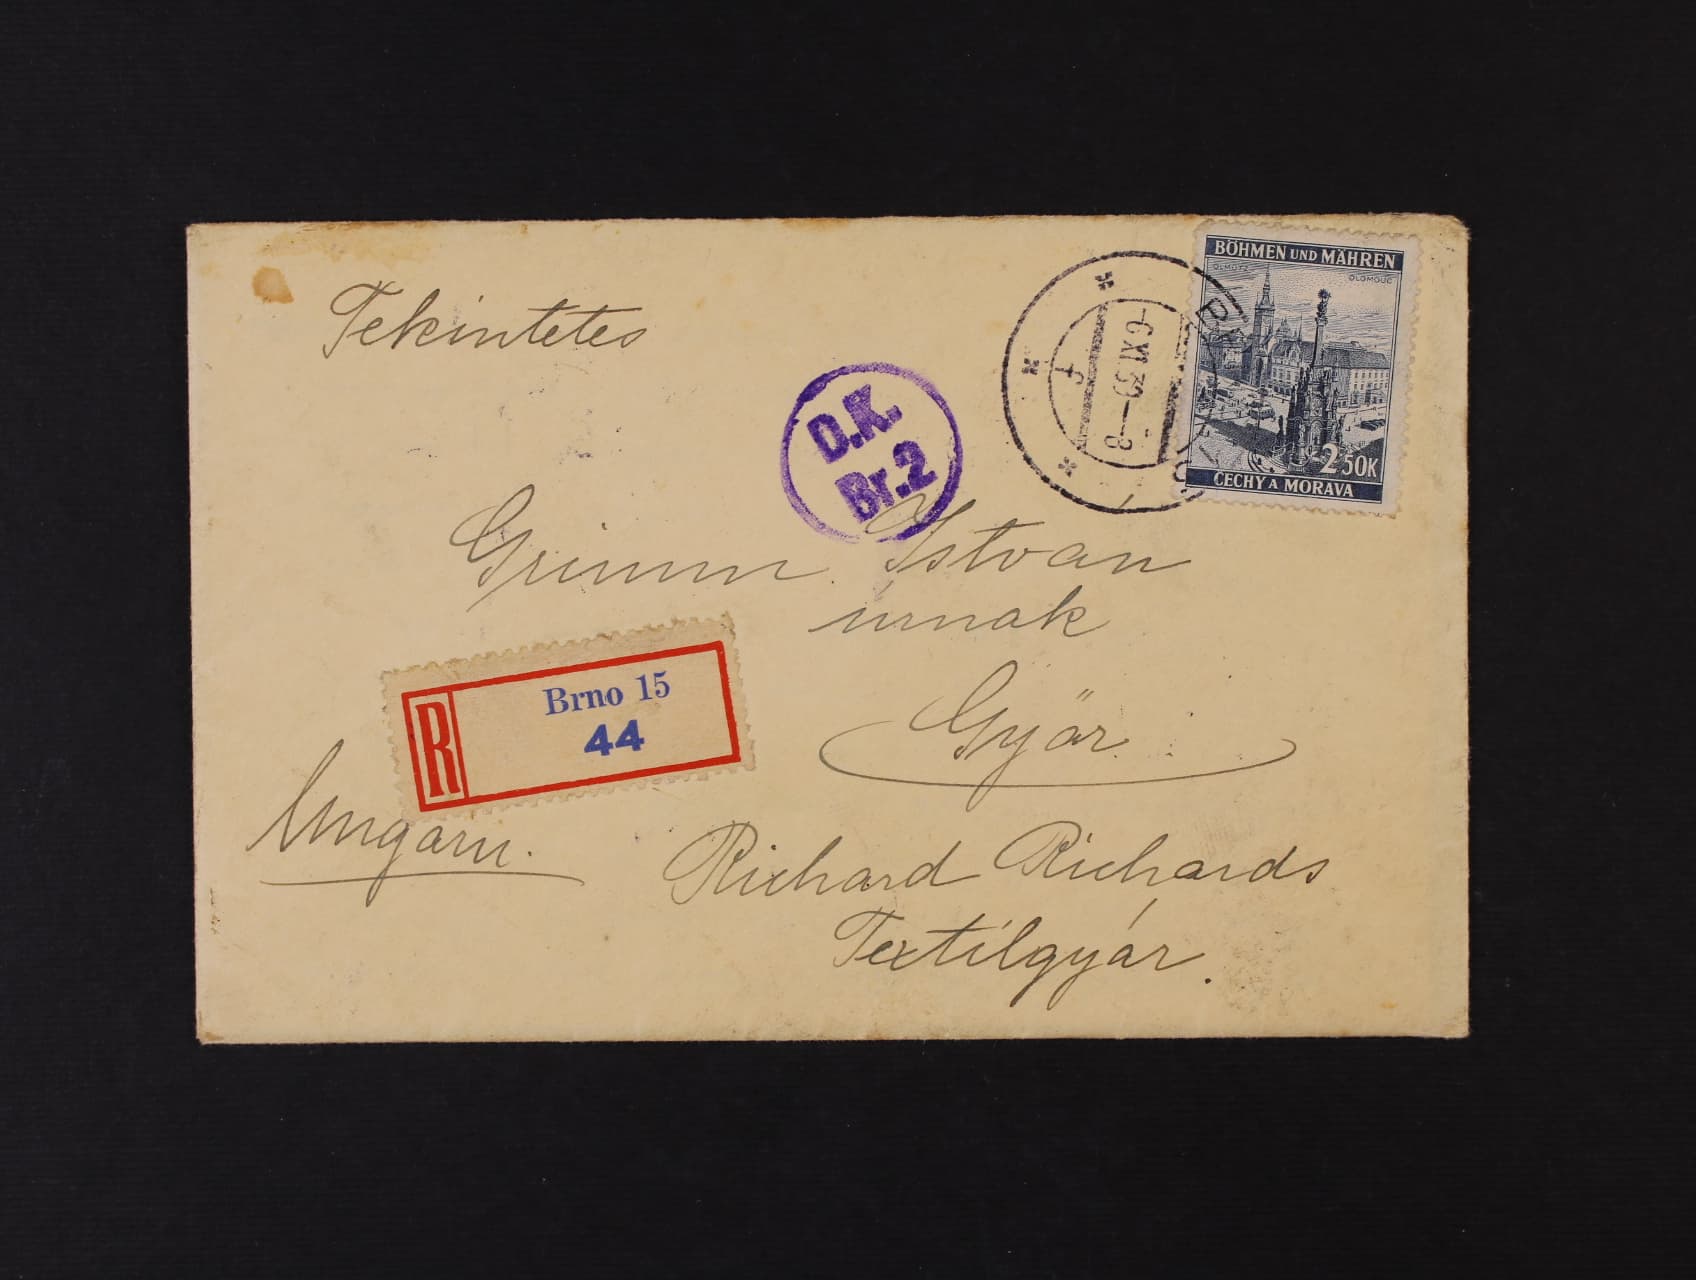 BÖHMEN UND MÄHREN
OLMÜTZ
OLOMOUC
2 50K
ČECHY A MORAVA
-6.XI.39-8
Tekintetes
D.K.
Br.2
Grimm Istvan
úrnak
Györ
R
Brno 15
44
Ungarn.
Richard Richards
Textilgyár.